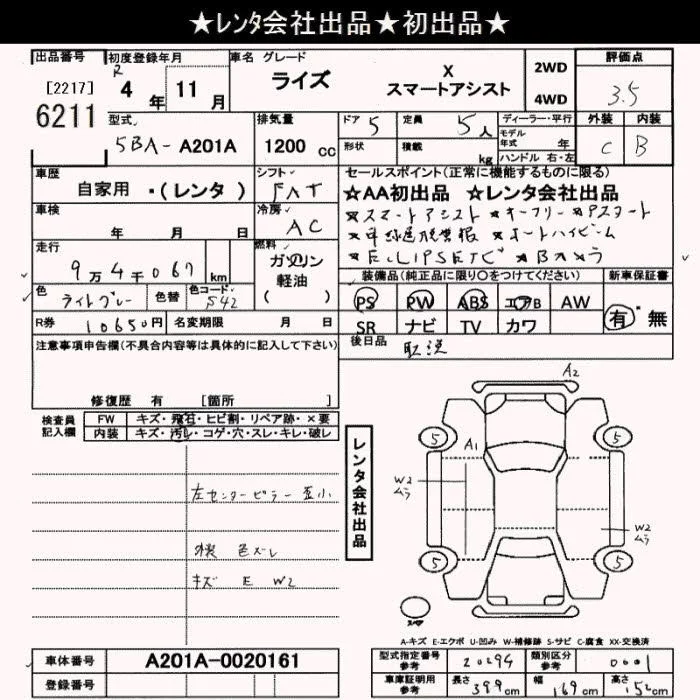 ★レンタ会社出品★初出品★
出品番号 初度登録年月 車名 グレード 評価点
[2217] R 4年 11月 ライズ X スマートアシスト 2WD 4WD 3.5
6211
型式 排気量 ドア 5 定員 5人 ディーラー・平行 外装 内装
5BA- A201A 1200cc 形状 積載 kg モデル年式 年 C B
ハンドル 右・左
車歴 シフト セールスポイント(正常に機能するものに限る)
自家用 ・(レンタ) FAT ★AA初出品 ☆レンタ会社出品
車検 冷房 ★スマートアシスト ★キーフリー ★Pスタート
年 月 日 AC ★車線逸脱警報 ★オートハイビーム
走行 燃料 ★ECLIPSETC ★Bカメラ
9万4千067km ガソリン 軽油 ( ) 装備品(純正品に限り○をつけてください) 新車保証書
色 ライトグレー 色替 色コード S42 PS PW ABS エアB AW 有・無
R券 10650円 名変期限 月 日 SR ナビ TV カワ
注意事項申告欄(不具合内容等は具体的に記入して下さい) 後日品 取説
修復歴 有 [箇所 ]
検査員記入欄 FW キズ・飛石・ヒビ割・リペア跡・×要
内装 キズ・汚レ・コゲ・穴・スレ・キレ・破レ
レンタ会社出品
A2
5 5
A1
W2 ムラ
W2 ムラ
5 5
スペア
左センターピラー 歪小
外装 色ズレ
キズ E W2
A-キズ E-エクボ U-凹み W-補修跡 S-サビ C-腐食 XX-交換済
車体番号 A201A-0020161 型式指定番号参考 20294 類別区分参考 0001
登録番号 車庫証明用参考 長さ 399cm 幅 169cm 高さ 152cm